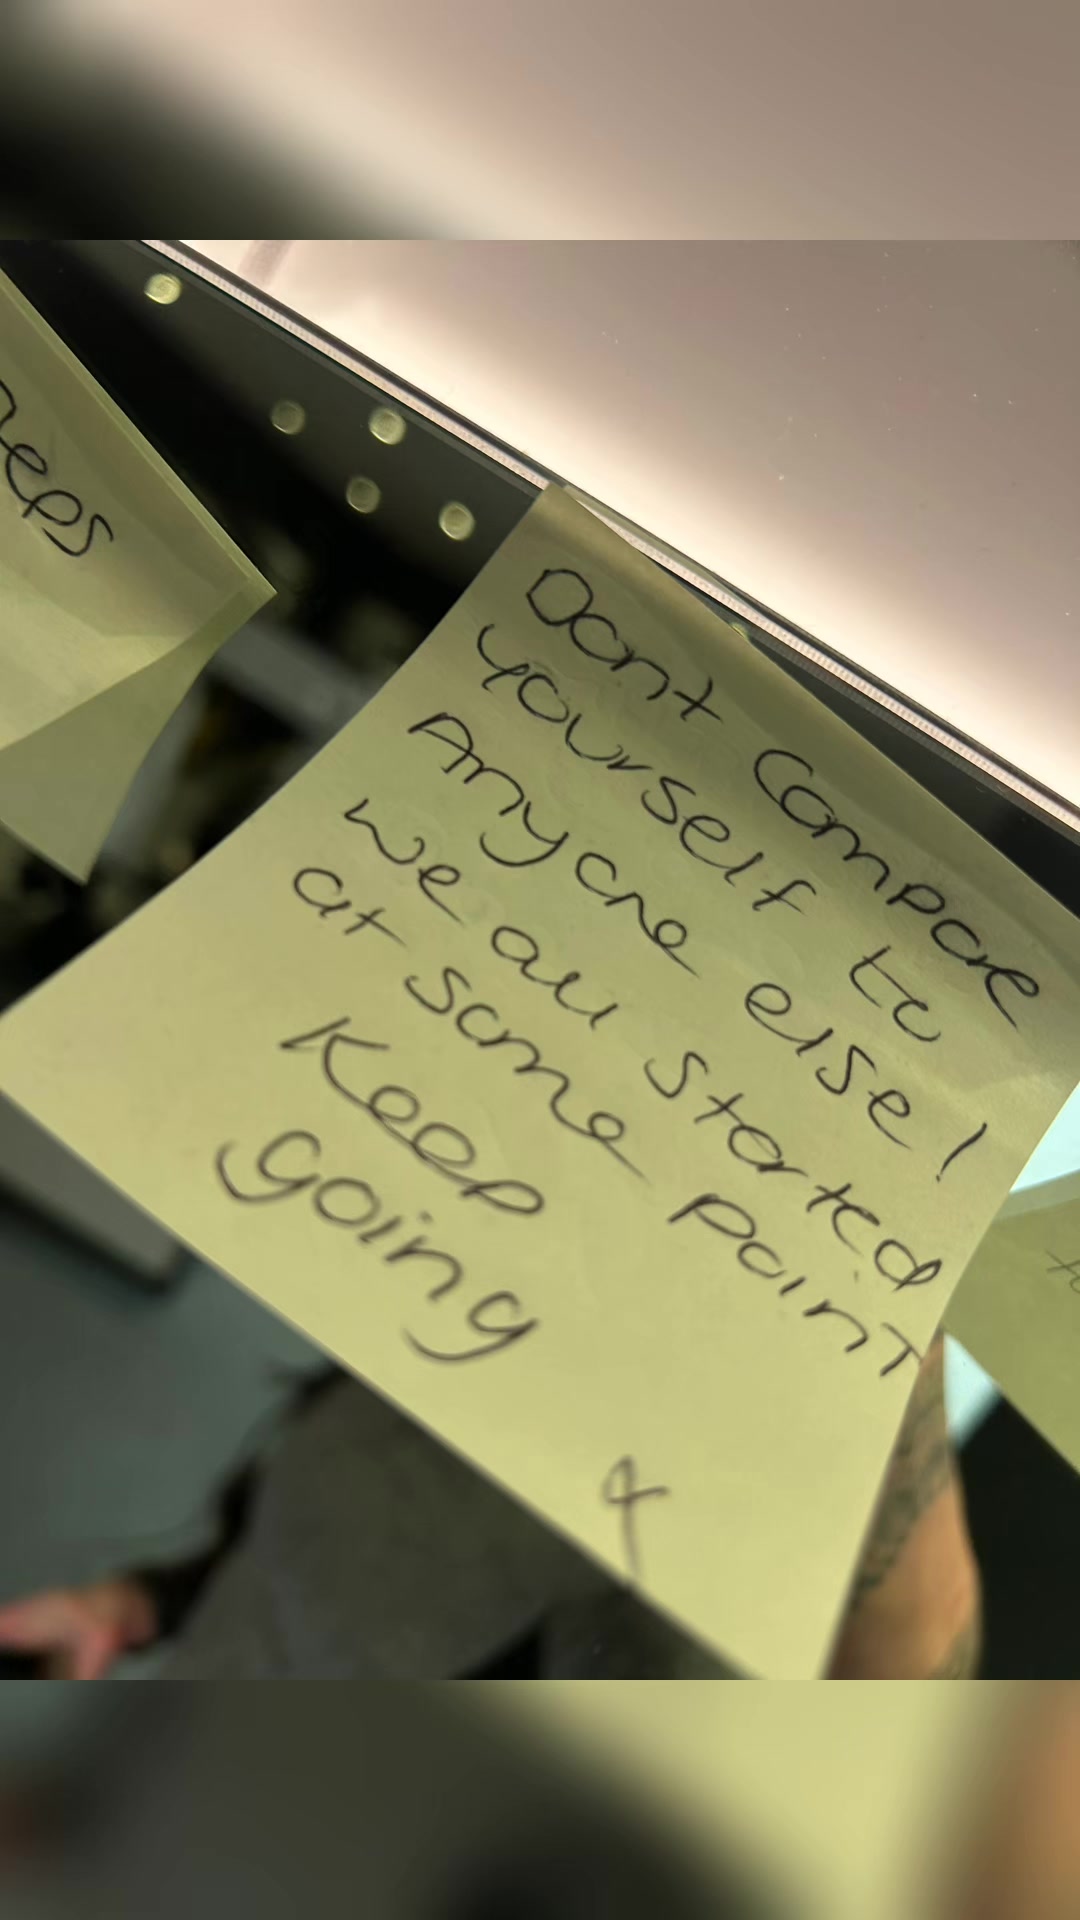 Dont Compare
yourself to
Anyone else!
we all started
at some point
Keep
going
x